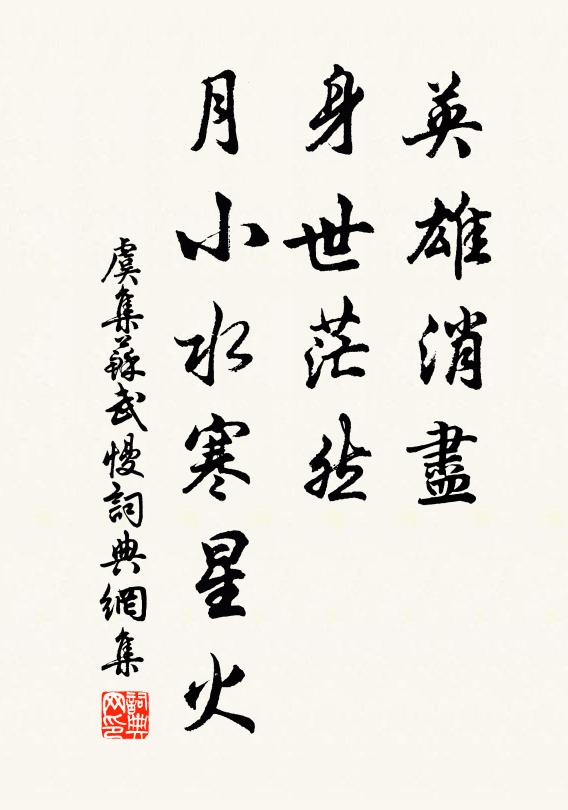 英雄消盡
身世茫然
月小水寒星火
虞集蘇武慢詞典網集
詞典網印